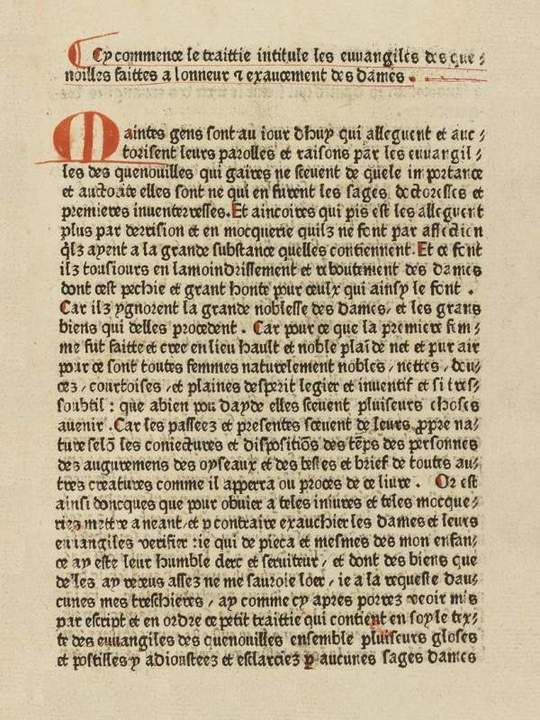 Cy commence le traittie intitule les euuangiles des que⸗
noilles faittes a lonneur ⁊ exaucement des dames.
Maintes gens sont au iour dhuy qui alleguent et auc⸗
torisent leurs parolles et raisons par les euuangil⸗
les des quenouilles qui gaires ne sceuent de quele importance
et auctorite elles sont ne qui en furent les sages doctoresses et
premieres inuenteresses. Et aincoires qui pis est les alleguent
plus par derrision et en mocquerie quilz ne font par affection
q̃lz ayent a la grande substance quelles contiennent. Et ce font
ilz tousiours en lamoindrissement et reboutement des dames
dont cest pechie et grant honte pour ceulx qui ainsy le font.
Car ilz ygnorent la grande noblesse des dames, et les grans
biens qui delles procedent. Car pour ce que la premiere fem⸗
me fut faitte et cree en lieu hault et noble plai de net et pur air
pour ce sont toutes femmes naturelement nobles / nettes, dou⸗
cez / courtoises, et plaines desperit legier et inuentif et si tres⸗
soubtil : que abien pou dayde elles sceuent pluiseurs choses
auenir. Car les passeez et presentes sceuent de leurs ꝓpre na⸗
ture selõ les coniectures et dispositiõs des tẽps des personnes
des auguremens des oyseaux et des bestes et brief de toutes au⸗
tres creatures comme il apperra ou proces de ce liure. Or est
ainsi doncques que pour obuier a teles iniures et teles mocque⸗
riez mettre a neant, et y contraire exauchier les dames et leurs
euuangiles verifier : ie qui de pieca et mesmes des mon enfan⸗
ce ay este leur humble clerc et seruiteur, et dont des biens que
delles ay receus assez ne me sauroie loer, ie a la requeste dau⸗
cunes mes treschieres, ay comme cy apres porrez veoir mis
par escript et en ordre ce petit traittie qui contient en soy le tex⸗
te des euuangiles des quenouilles ensemble pluiseurs gloses
et postilles y adiousteez et esclarciez ꝑ aucunes sages dames